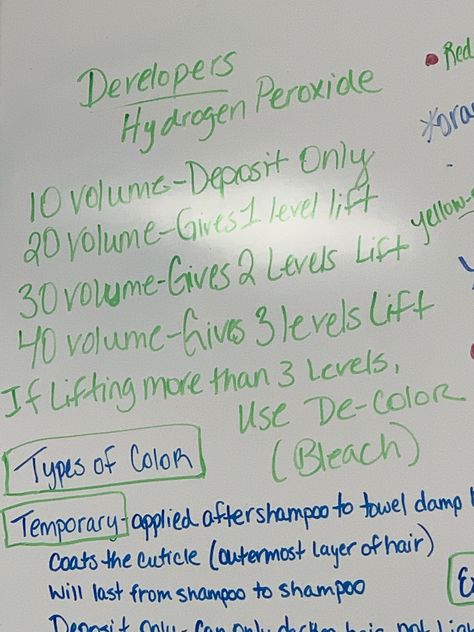 Developers
Hydrogen Peroxide
10 Volume-Deposit Only
20 Volume-Gives 1 level lift
30 Volume-Gives 2 Levels Lift
40 Volume-Gives 3 levels Lift
If Lifting more than 3 Levels,
Use De-Color
(Bleach)
Red
yellow-
Types of Color
Temporary-applied after shampoo to towel damp
Coats the cuticle (outermost layer of hair)
Will last from shampoo to shampoo
Deposit Only-Can only darken hair not